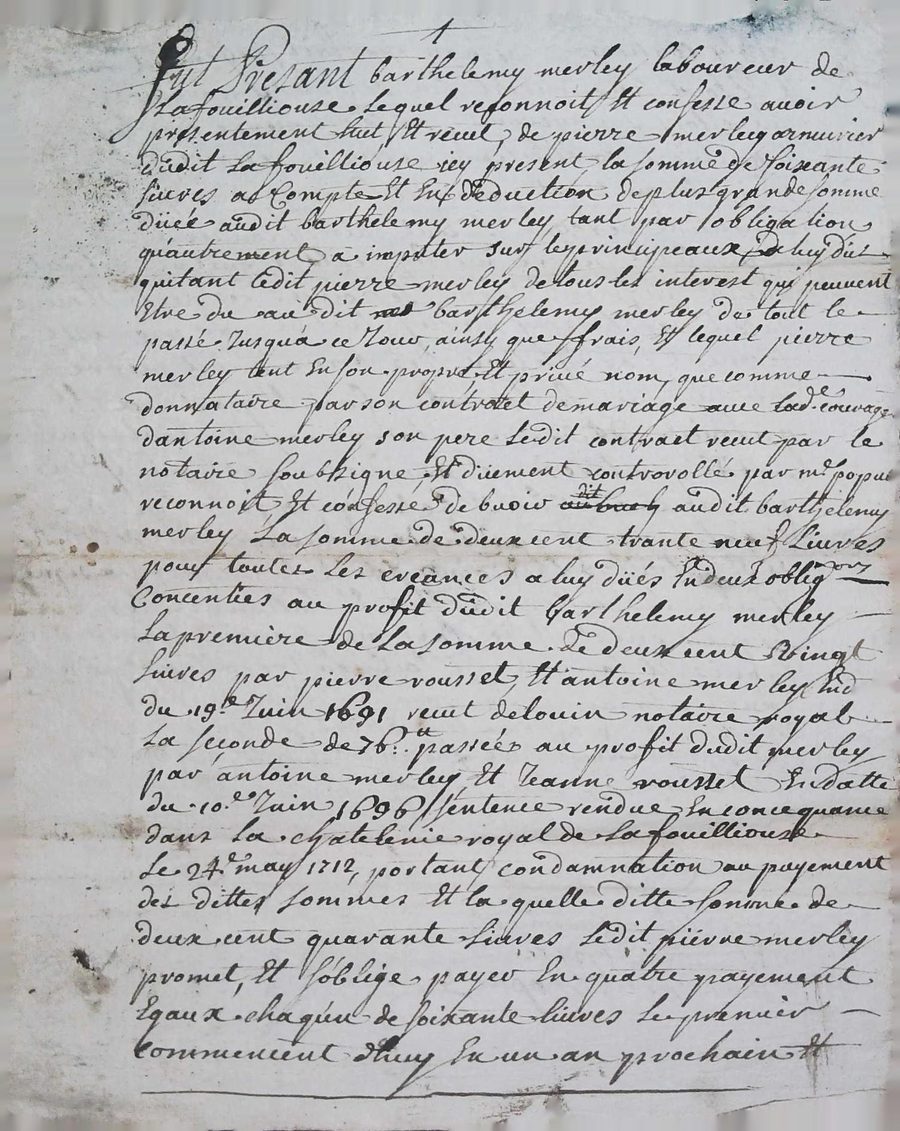 1
fut Présant barthelemy merley laboureur de
Lafouilliouse Lequel reconnoit Et confesse avoir
présentement Eut Et recut de pierre merley armurier
dudit Lafouilliouse icy present la somme de soixante
livres a Compte Et En déduction de plus grande somme
düée audit barthelemy merley tant par obligation
quautrement a imputer sur les principeaux a luy dus
quitant ledit pierre merley de tous les interest qui peuvent
Etre du au dit barthelemy merley de tout le
passé Jusqua ce Jour, ainsy que ffrais, Et lequel pierre
merley tant En son propre Et privé nom, que comme
donnataire par son contract de mariage avec Lad.e courage
dantoine merley son pere Ledit contract recut par le
notaire soubsigne Et düement controrollé par m.e popu
reconnoit Et confesse debvoir audit barthelemy
merley La somme de deux cent trante neuf Livres
pour toutes Les creances a luy düés En deux oblig.ons
Concenties au profit dudit barthelemy merley
La première de La somme de deux cent Vingt
livres par pierre rousset, Et antoine merley
du 19.e Juin 1691 recut delouin notaire royal
La seconde de 76.tt passée au profit dudit merley
par antoine merley Et Jeanne rousset En datte
du 10.e Juin 1696 sentence rendue En concequance
dans La chatelenie royal de Lafouilliouse
Le 24.e may 1712, portant condamnation au payement
des dittes sommes Et la quelle ditte somme de
deux cent quarante Livres Ledit piérre merley
promet, Et s'oblige payer En quatre payement
Egaux chaqun de soixante livres Le premier
commencent dhuy En un an prochain Et